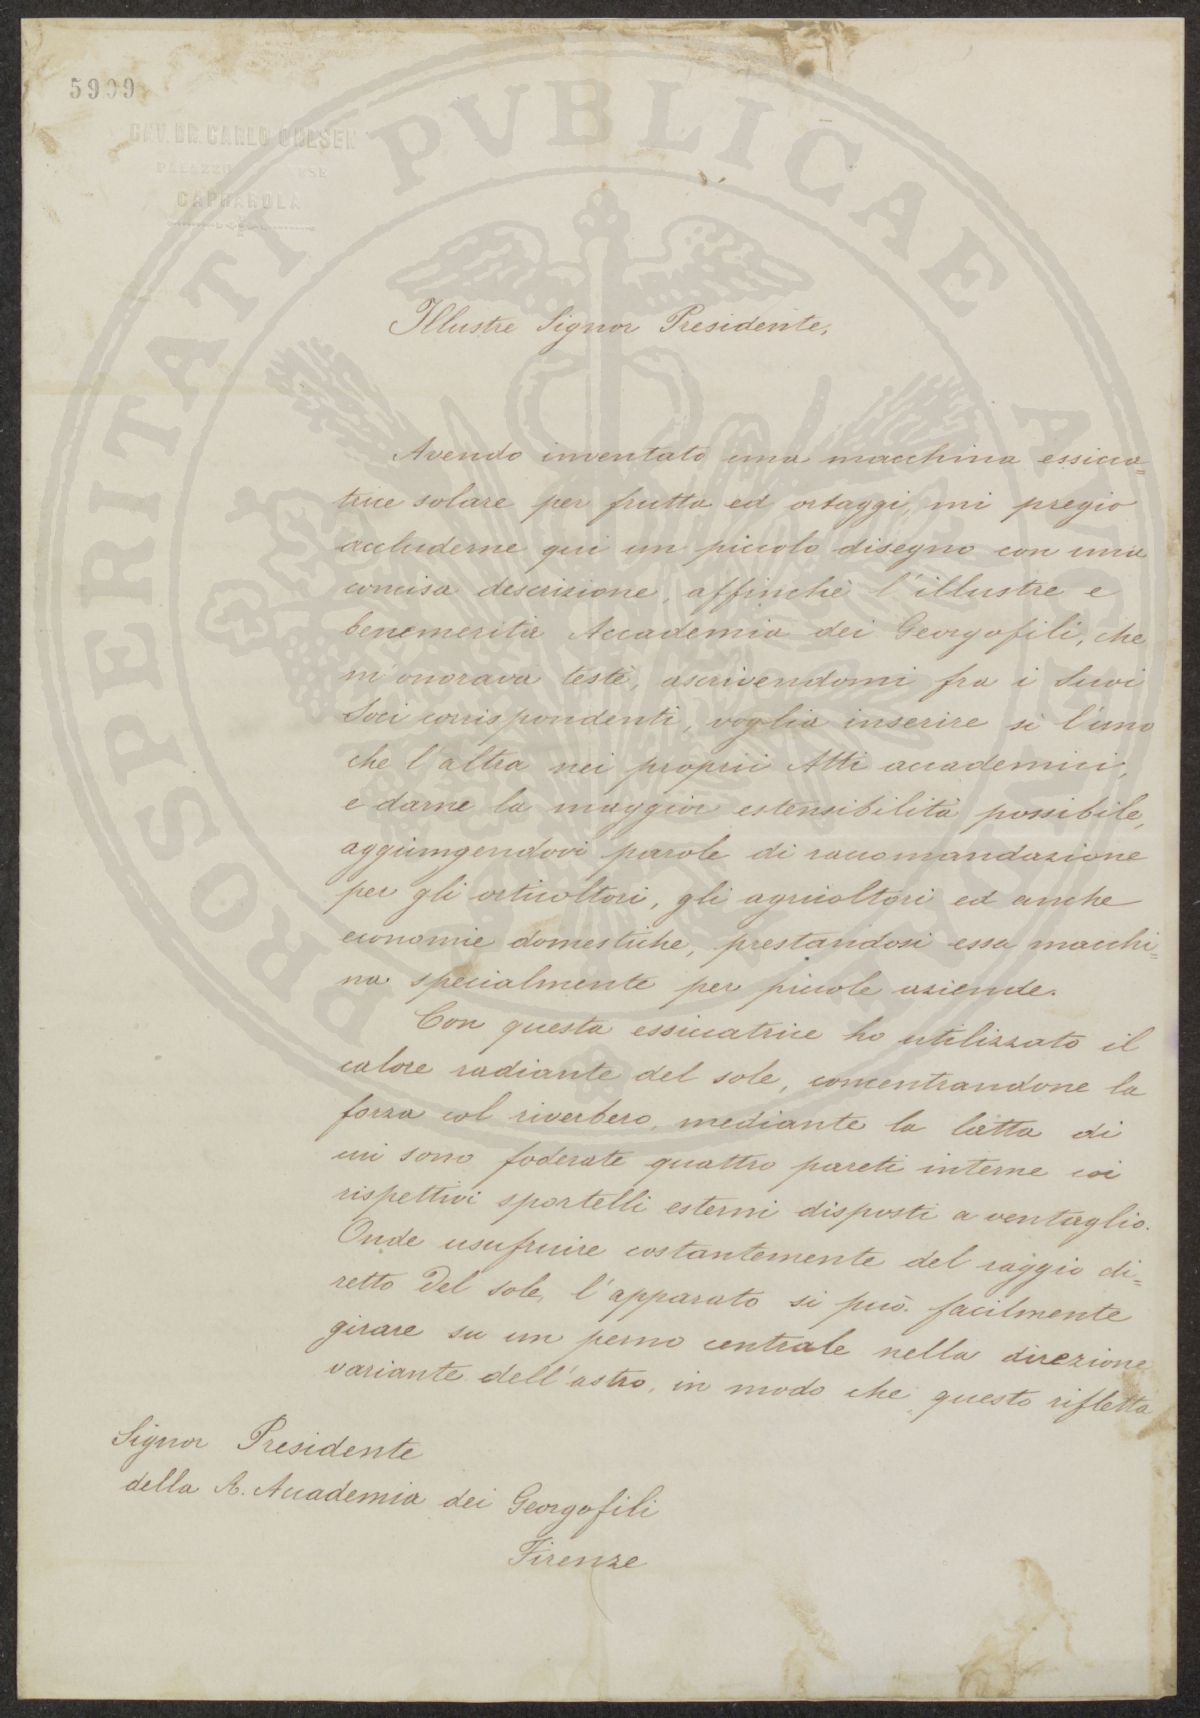 5909
CAV. DR. CARLO OHLSEN
PALAZZO FARNESE
CAPRAROLA
PROSPERITATI PVBLICAE AVGENDAE
Illustre Signor Presidente,
Avendo inventato una macchina essicca=
trice solare per frutta ed ortaggi, mi pregio
accluderne qui un piccolo disegno con una
concisa descrizione, affinchè l'illustre e
benemerita Accademia dei Georgofili, che
m'onorava testè, ascrivendomi fra i Suoi
Soci corrispondenti, voglia inserire sì l'uno
che l'altra nei proprii Atti accademici,
e darne la maggior estensibilità possibile,
aggiungendovi parole di raccomandazione
per gli orticoltori, gli agricoltori ed anche
economie domestiche, prestandosi essa macchi=
na specialmente per piccole aziende.
Con questa essiccatrice ho utilizzato il
calore radiante del sole, concentrandone la
forza col riverbero, mediante la latta di
cui sono foderate quattro pareti interne coi
rispettivi sportelli esterni disposti a ventaglio.
Onde usufruire costantemente del raggio di=
retto del sole, l'apparato si può facilmente
girare su un perno centrale nella direzione
variante dell'astro, in modo che questo rifletta
Signor Presidente
della R. Accademia dei Georgofili
Firenze